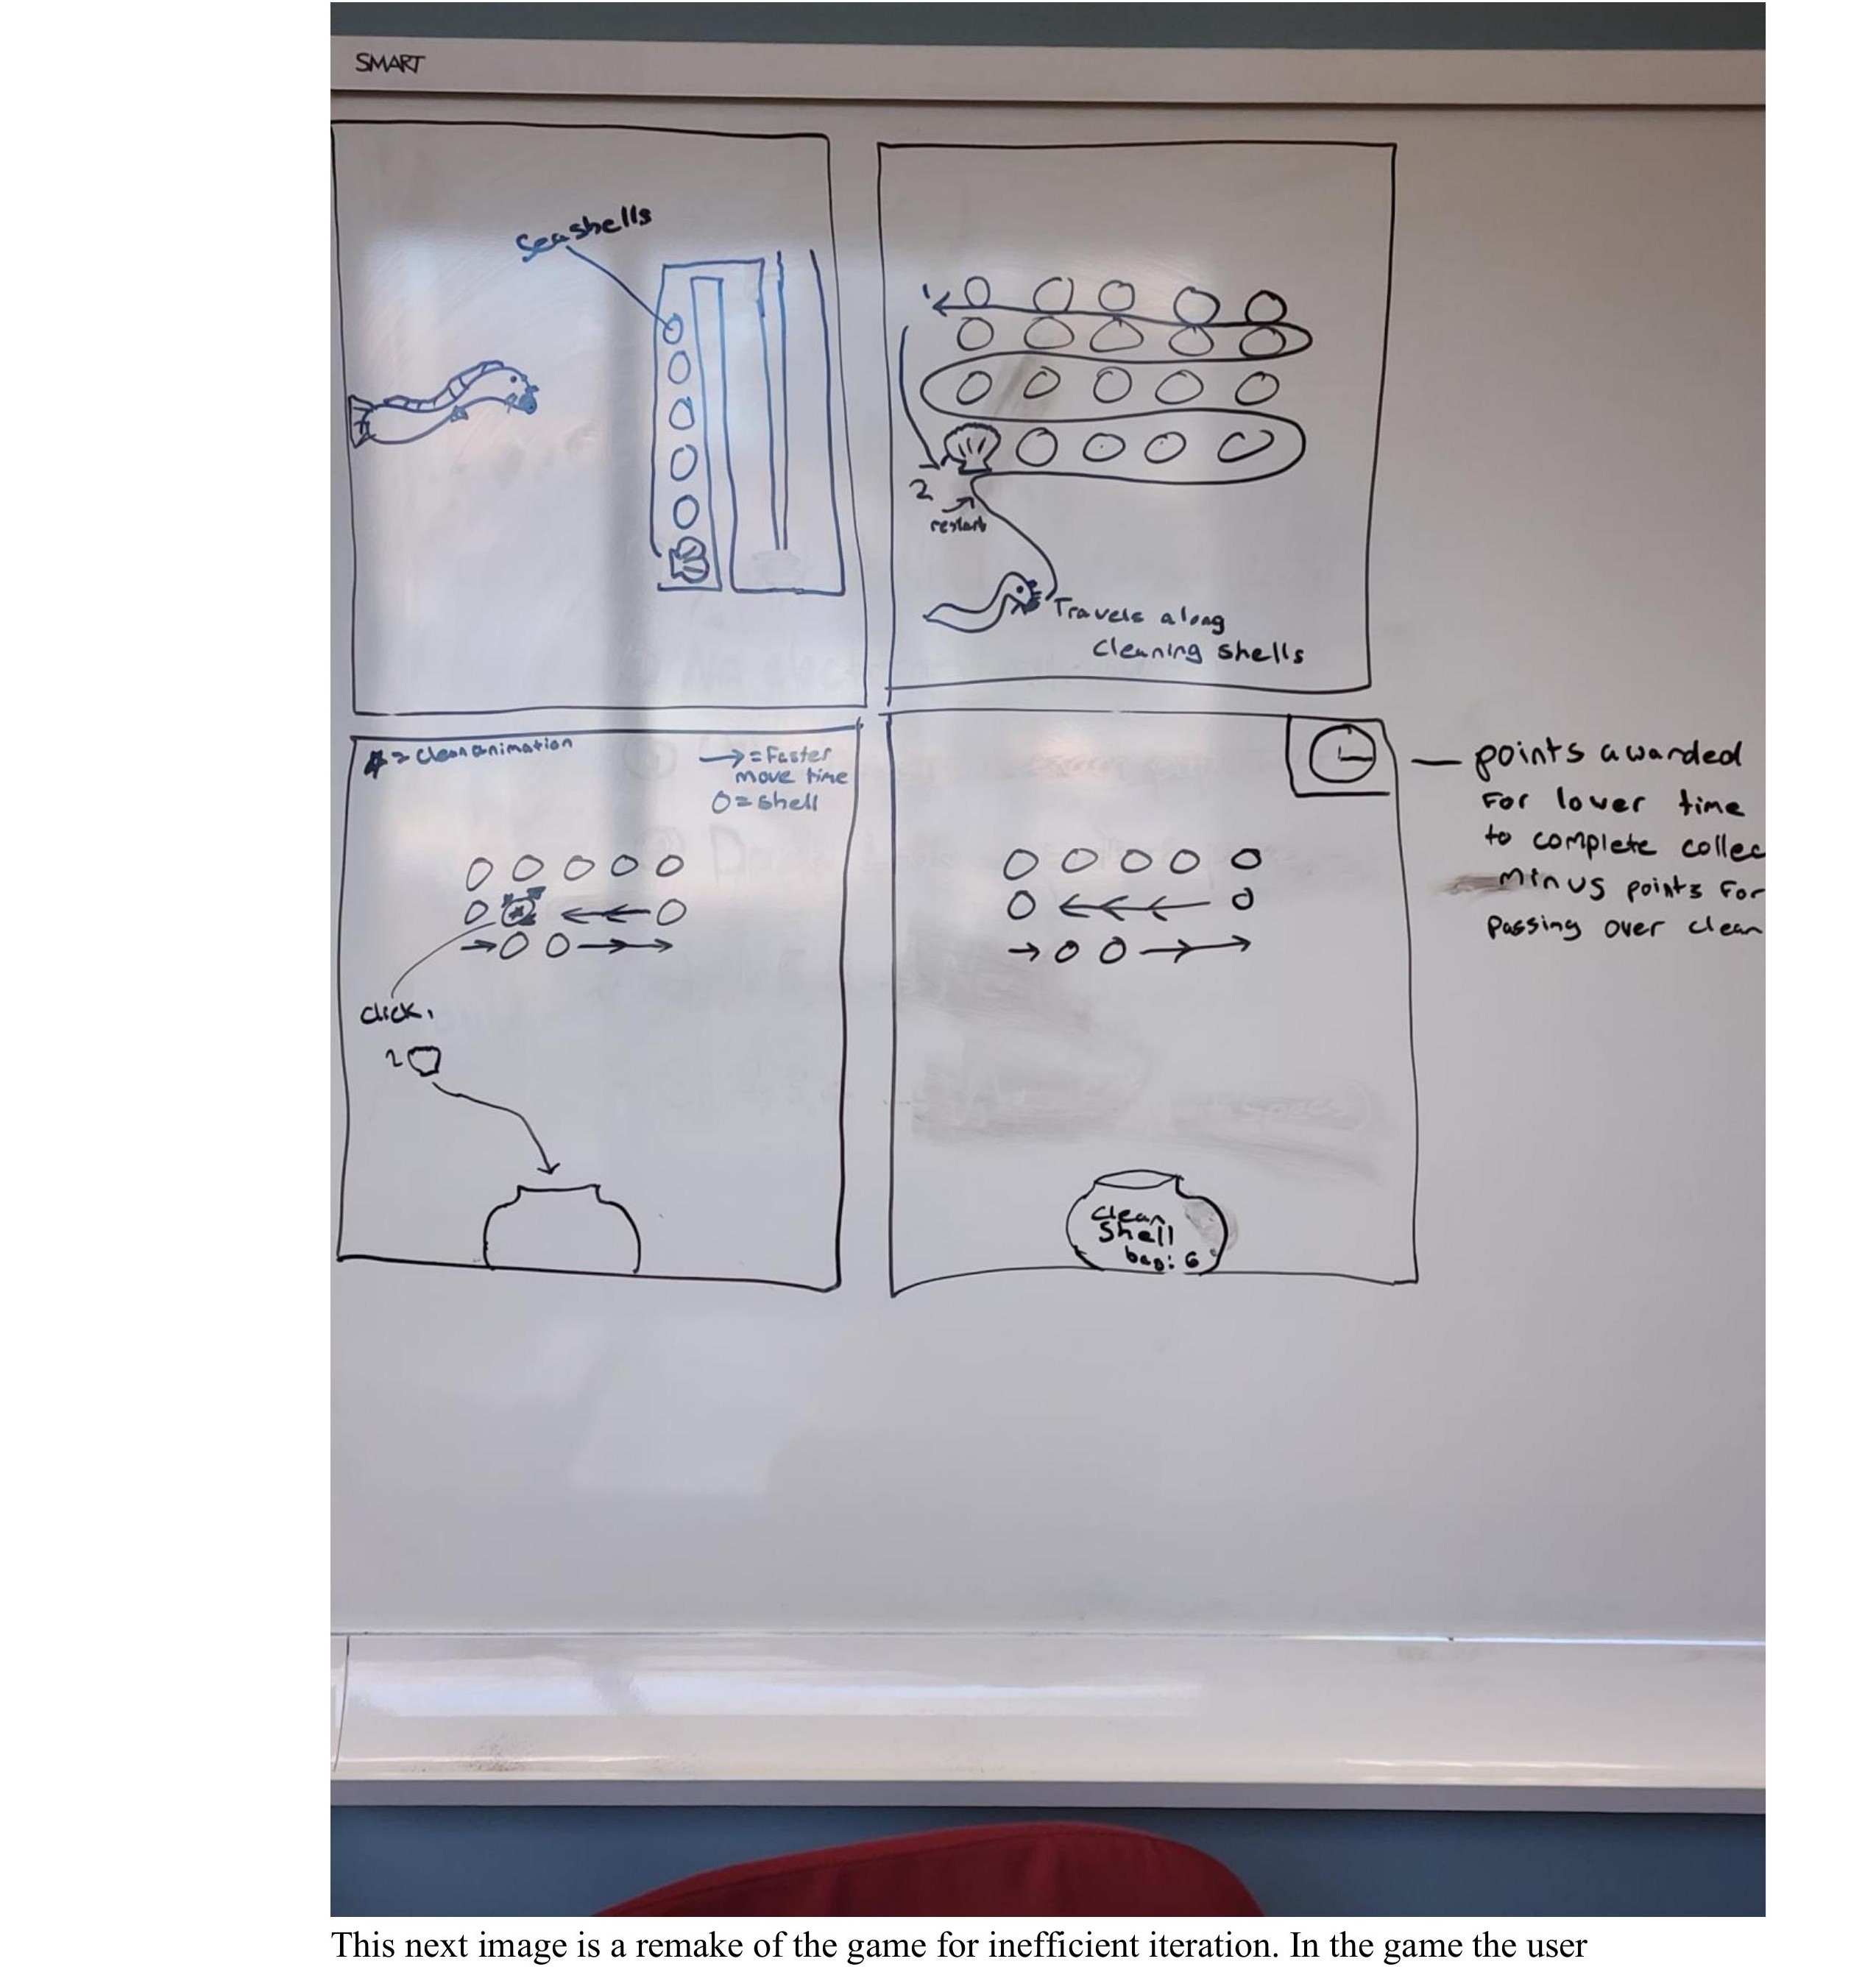 SMART
Seashells
1
2
restart
Travels along
cleaning shells
= clean animation
→ = Faster
move time
O = shell
click 1
2
clean
shell
bag: 6
points awarded
For lower time
to complete collec
minus points For
passing over clean
This next image is a remake of the game for inefficient iteration. In the game the user